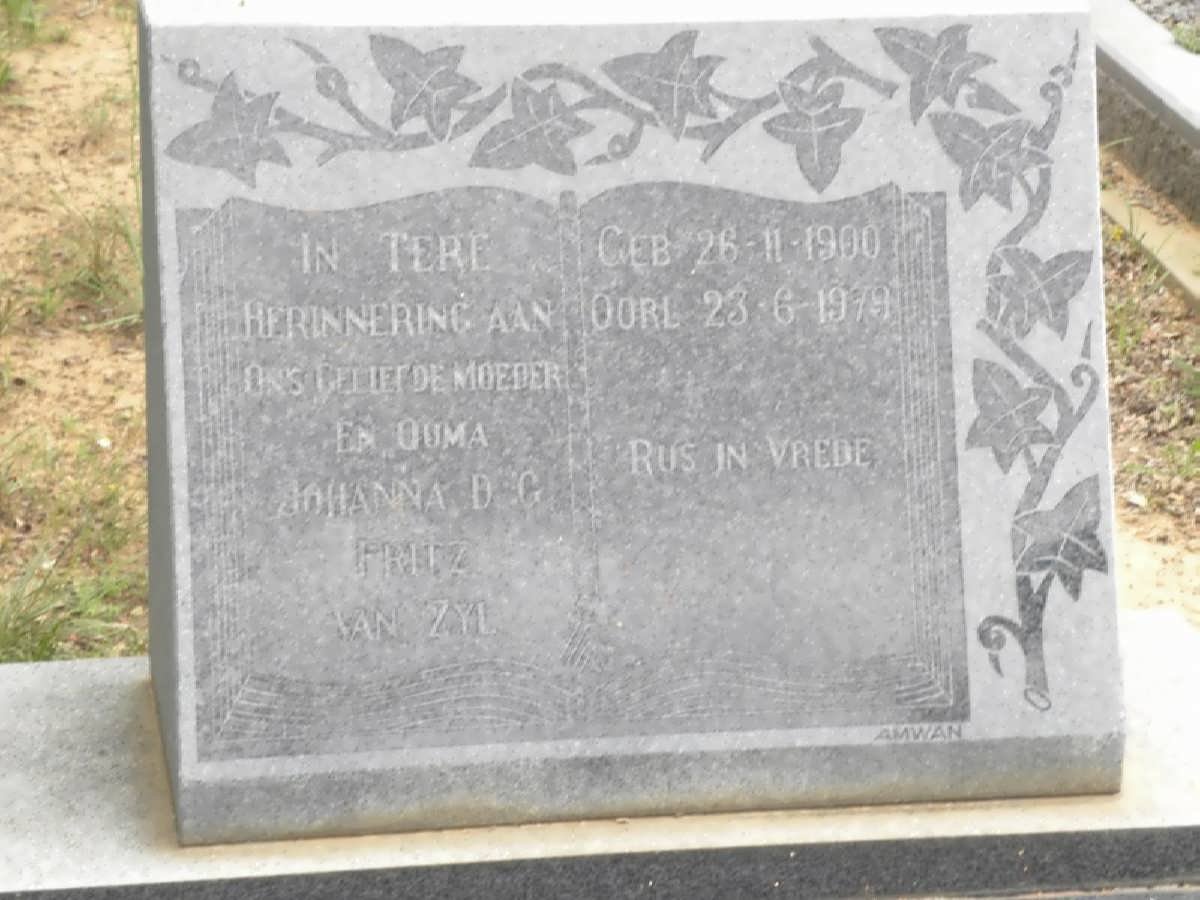 IN TERE
HERINNERING AAN
ONS GELIEFDE MOEDER
EN OUMA
JOHANNA D G
FRITZ
VAN ZYL
GEB 26-11-1900
OORL 23-6-1979
RUS IN VREDE
AMWAN